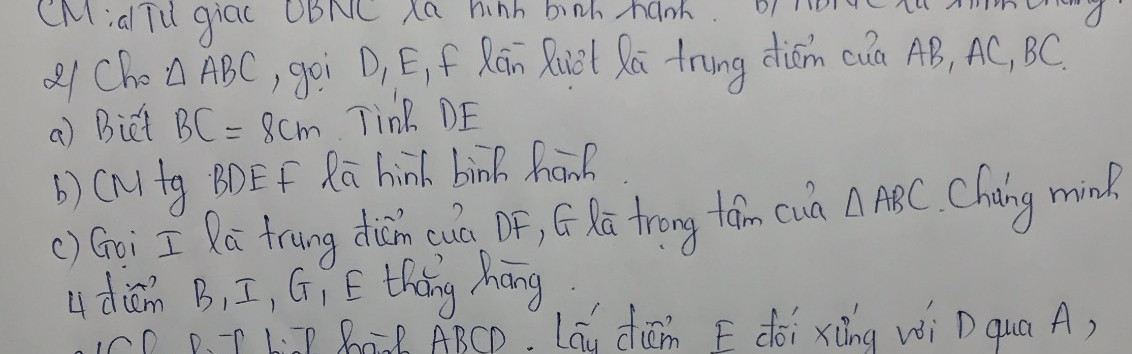 CM: a/ Tứ giác OBNC là hình bình hành. b/
2/ Cho Δ ABC, gọi D, E, F lần lượt là trung điểm của AB, AC, BC.
a) Biết BC = 8cm. Tính DE
b) CM tg BDEF là hình bình hành.
c) Gọi I là trung điểm của DF, G là trọng tâm của Δ ABC. Chứng minh
4 điểm B, I, G, E thẳng hàng.
hình bình hành ABCD. Lấy điểm E đối xứng với D qua A,